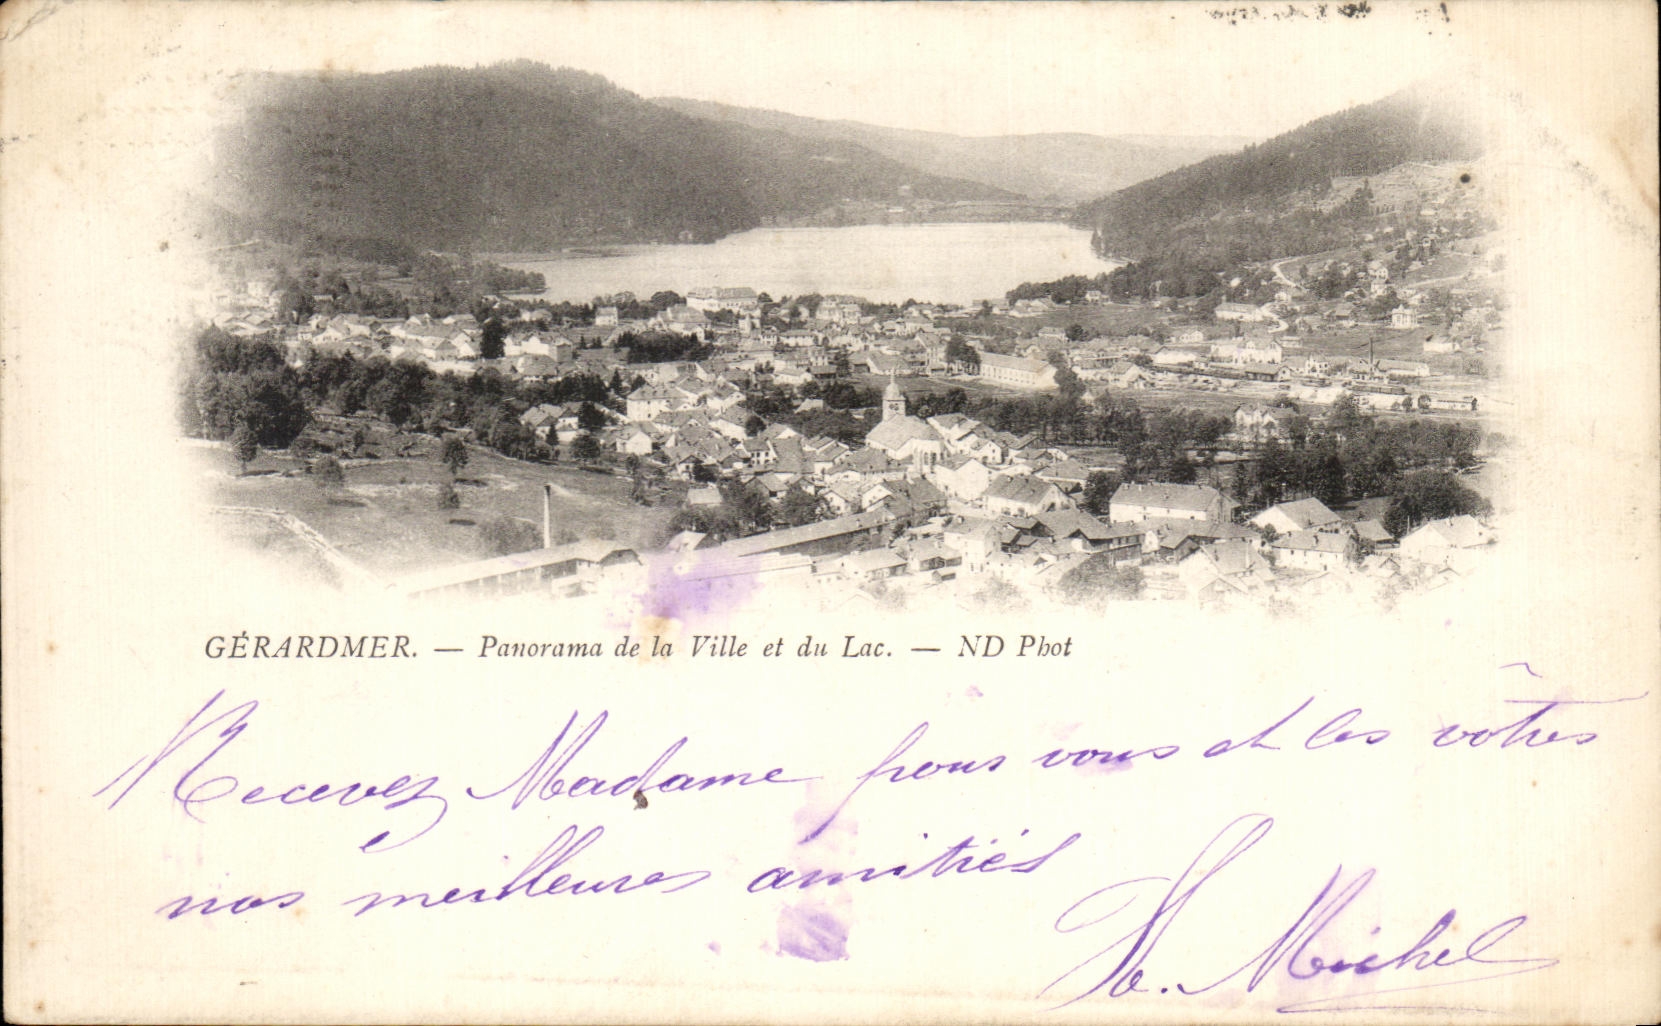 GÉRARDMER. — Panorama de la Ville et du Lac. — ND Phot
Recevez Madame pour vous et les vôtres
nos meilleures amitiés
Michel